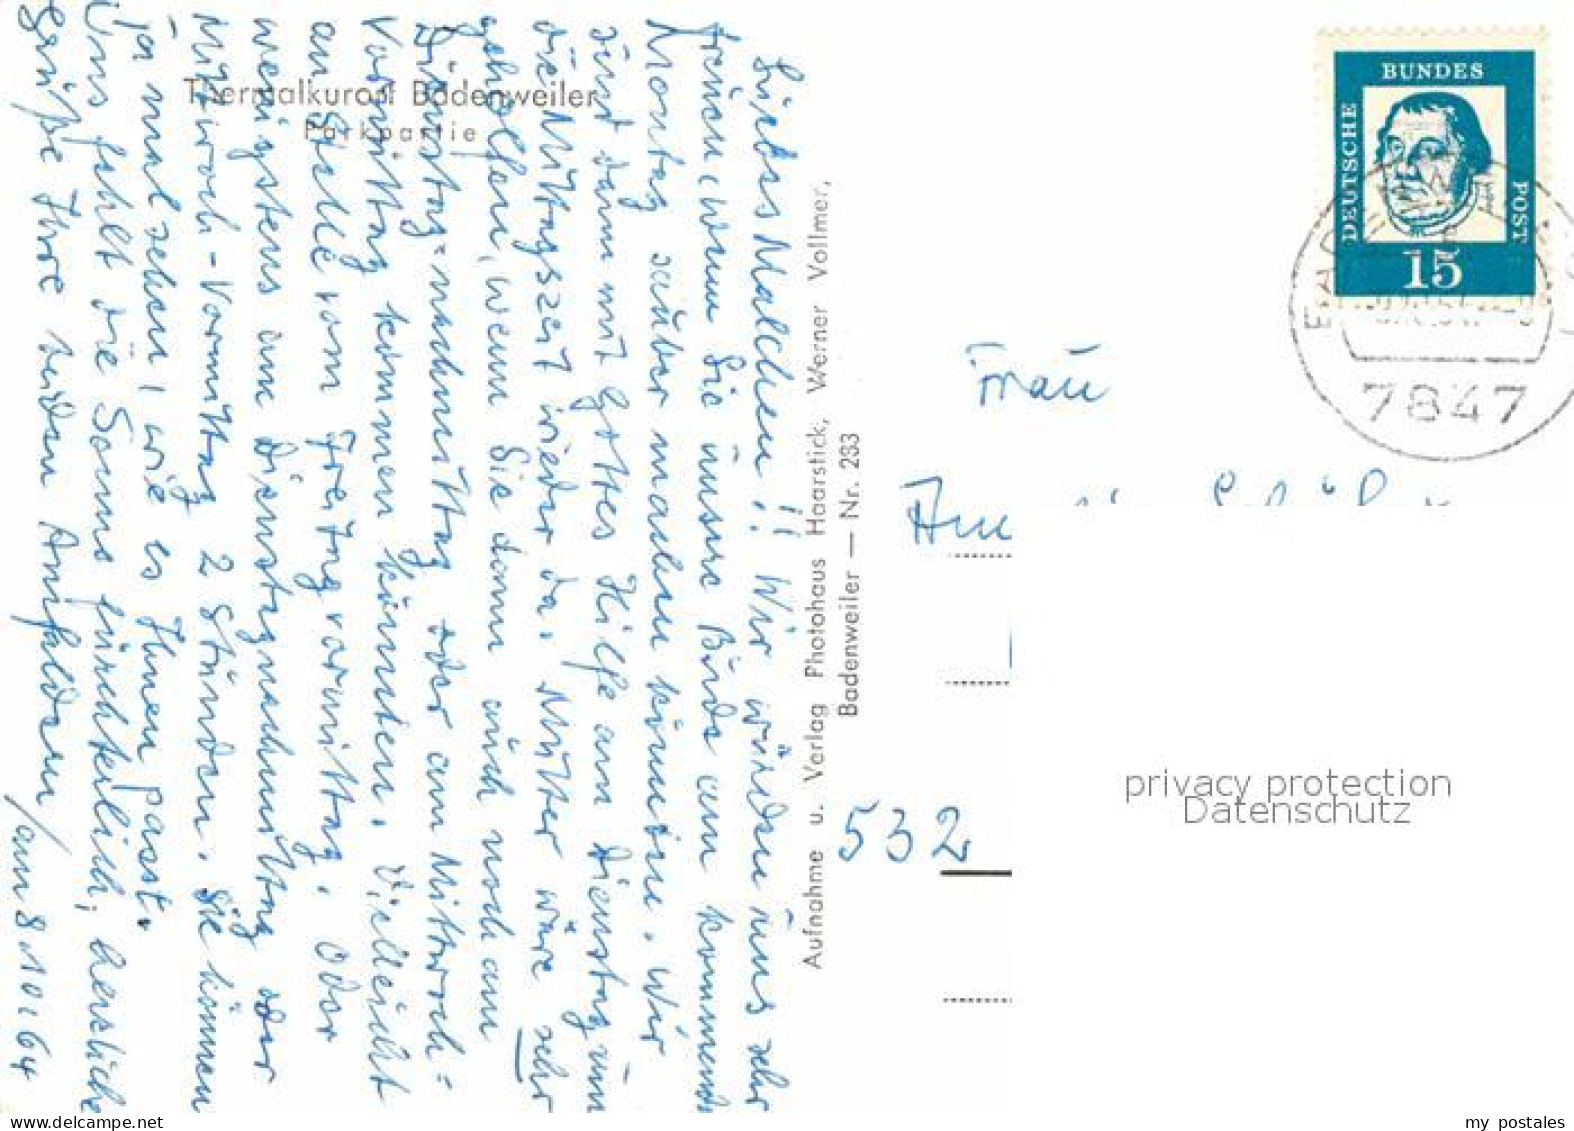 Thermalkurort Badenweiler
Parkpartie
Liebes Malchen!! Wir würden uns sehr
freuen, wenn Sie unsere Bude am kommend.
Montag sauber machen könnten. Wir
sind dann mit Gottes Hilfe am Dienstag um
die Mittagszeit wieder da. Mutter wäre sehr
geholfen, wenn Sie dann auch noch am
Dienstag-nachmittag oder am Mittwoch-
Vormittag kommen könnten. Vielleicht
an Stelle vom Freitagvormittag. Oder
wenigstens am Dienstagnachmittag oder
Mittwoch-Vormittag 2 Stunden. Sie können
ja mal sehen, wie es Ihnen passt.
Uns fehlt die Sonne fürchterlich, herzliche
Grüße Ihre beiden
/am 8.10.64
Aufnahme u. Verlag Photohaus Haarstick, Werner Vollmer,
Badenweiler — Nr. 233
DEUTSCHE
BUNDES
POST
15
7847
Frau
532
privacy protection
Datenschutz
delcampe.net
my_postales